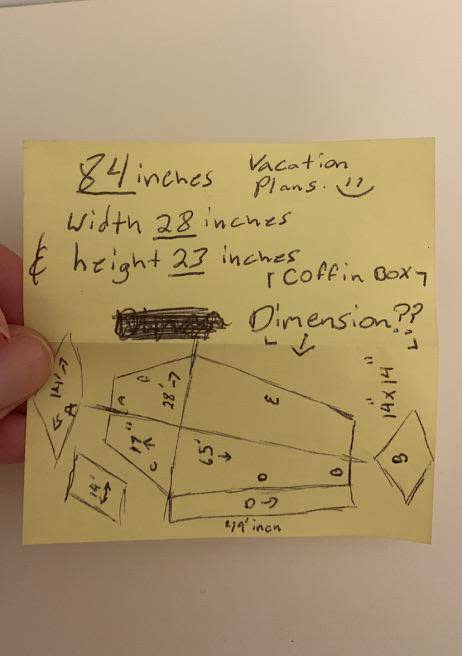 84 inches
Vacation
Plans.
Width 28 inches
& height 23 inches
[Coffin Box]
Dimension??
14'
A
A
D
28'
17"
C
65'
E
D
B
D
49' inch
14'
14x14"
B